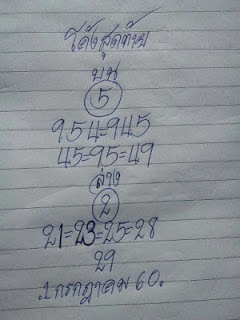 โค้งสุดท้าย
บน
5
954=945
45=95=49
ล่าง
2
21=23=25=28
29
.1 กรกฎาคม 60.